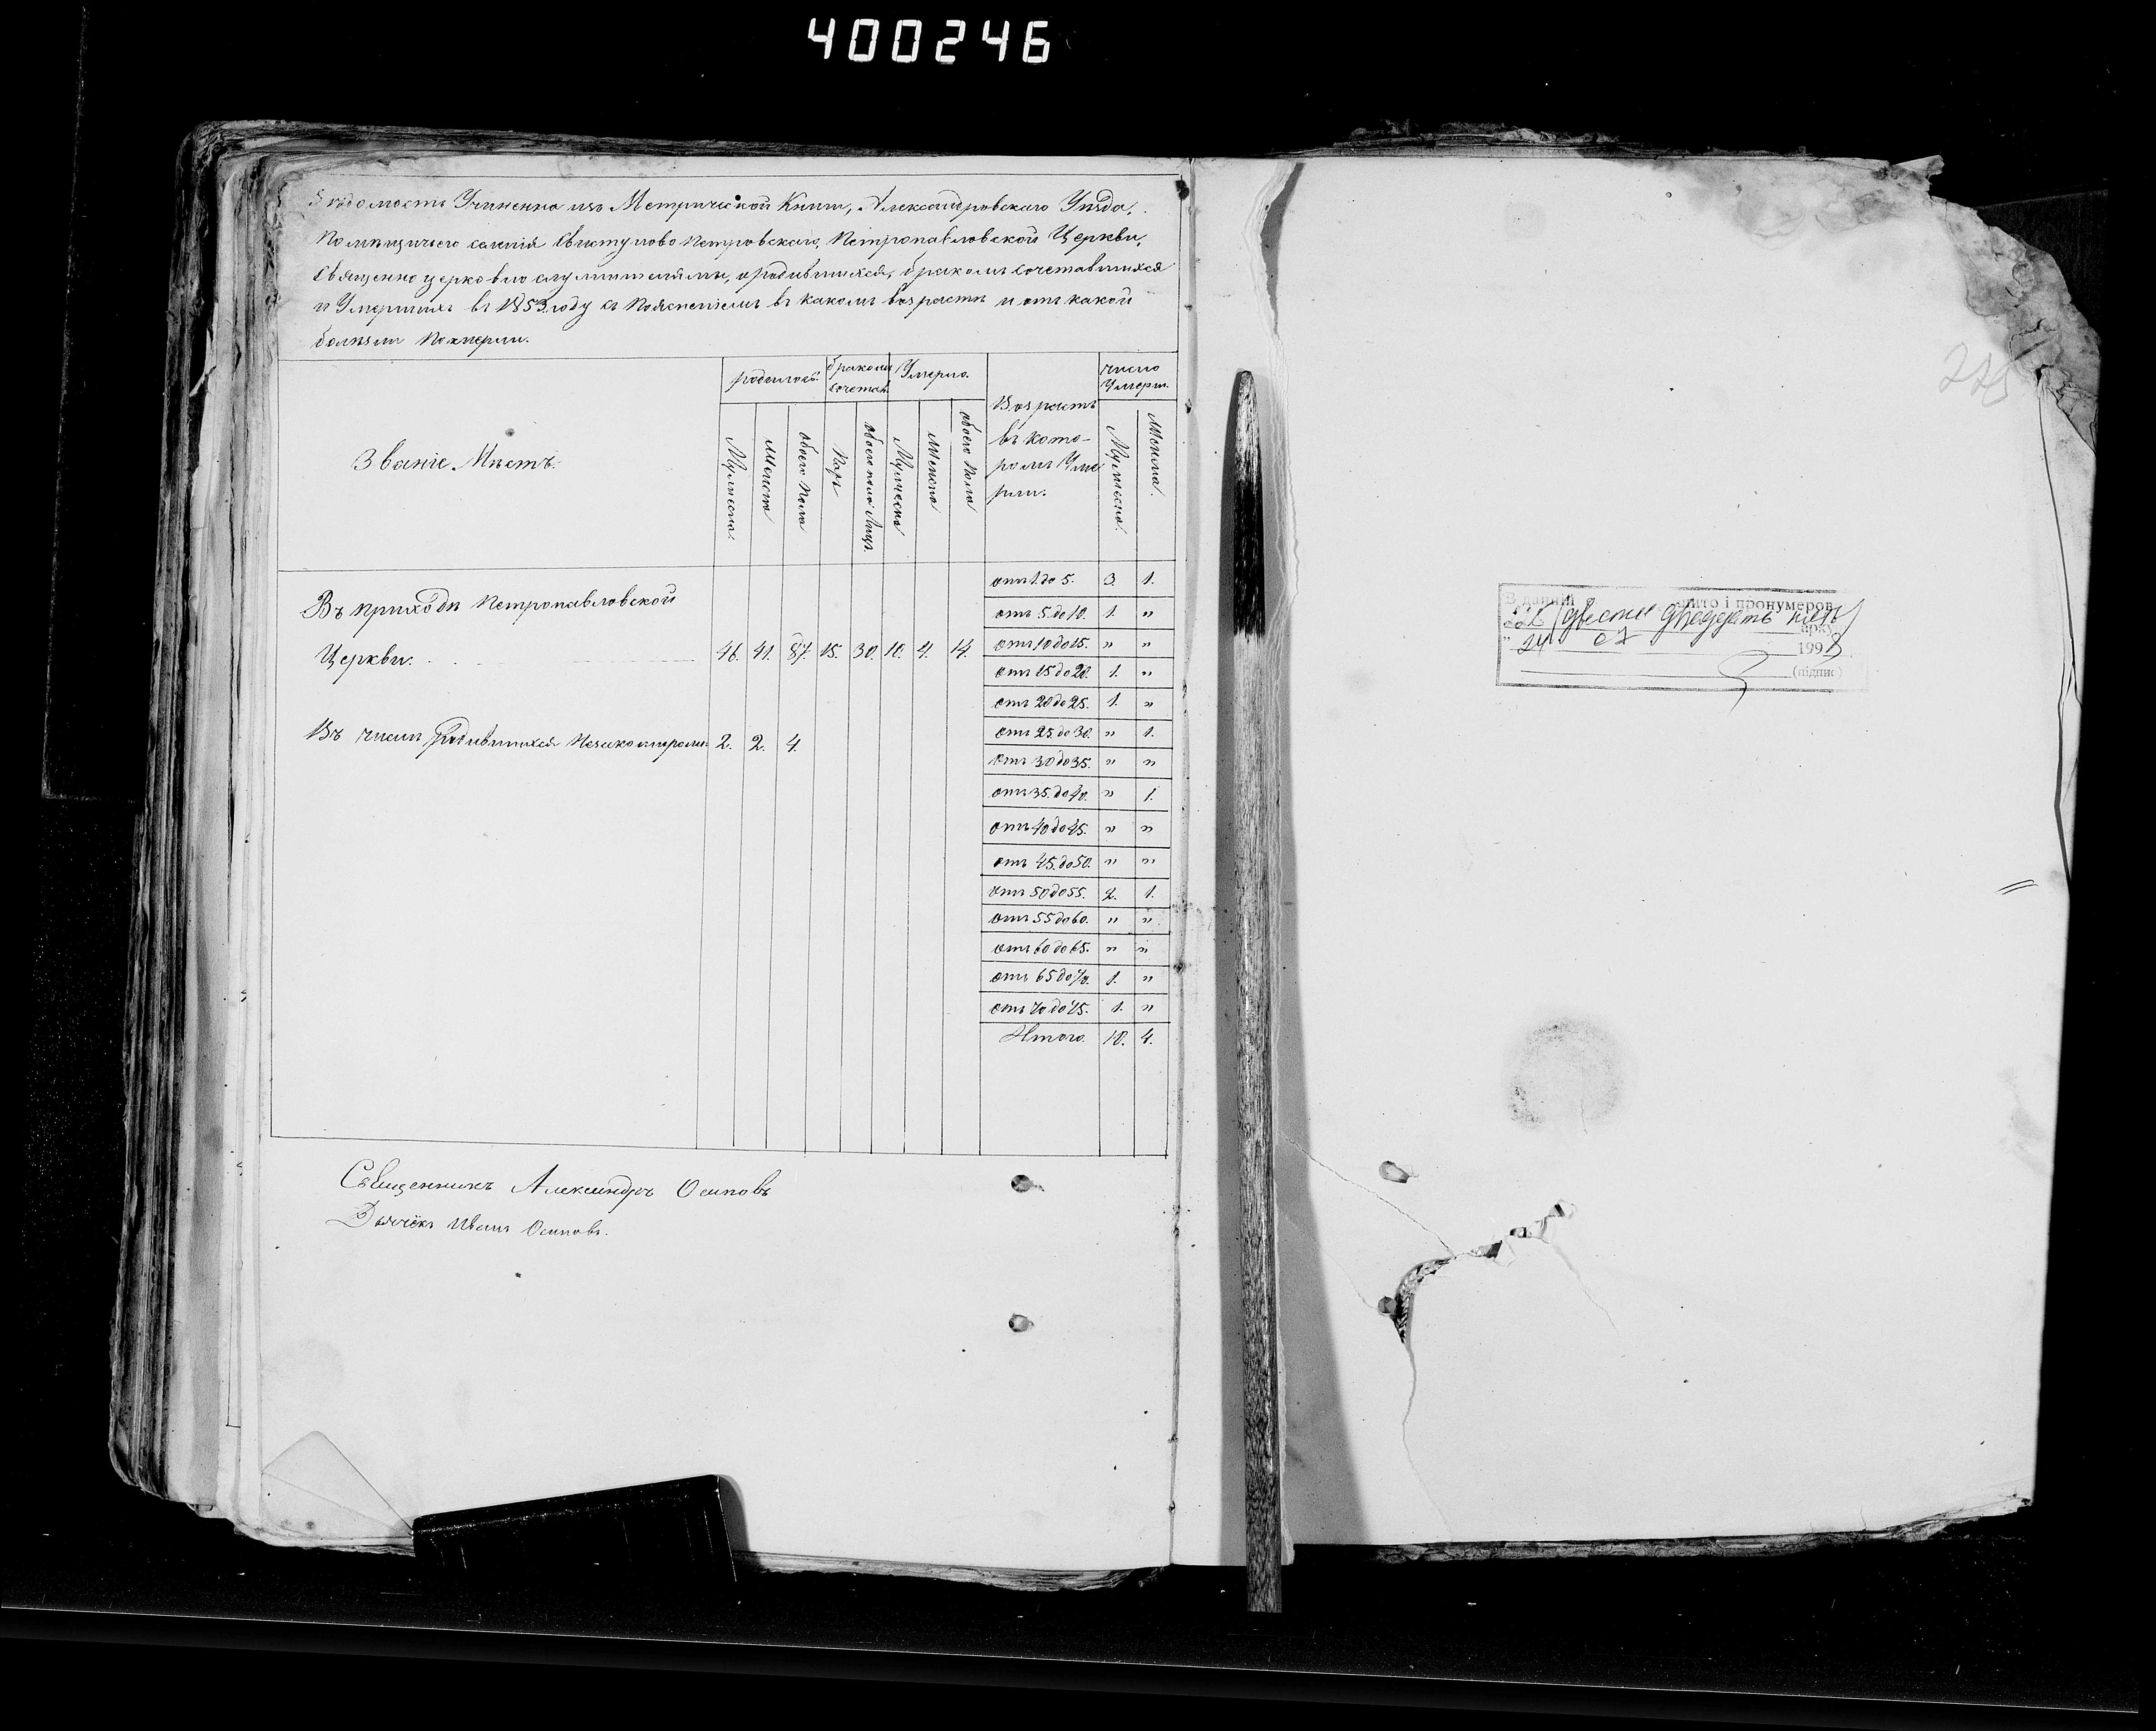 400246
Вѣдомость Учиненна изъ Метрической Книги, Александровскаго Уѣзда,
Помѣщичьего селенія Свистуново Петровскаго, Петропавловской Церкви,
Священно церковно служителями, о родившихся, бракомъ сочетавшихся
и Умершихъ въ 1853 году съ Пояснениемъ въ какомъ возрастѣ и отъ какой
болѣзни Померли.
Званіе Мѣстъ.
родилось.
бракомъ сочетав.
Умерло.
Возрастъ
въ кото-
ромъ Уме
рли.
число
Умерш.
Мужеска.
Женска
обоего Пола
Паръ
обоего пола лицъ.
Мужеска
Женска
обоего Пола
Мужеска.
Женска.
Въ приходѣ Петропавловской
Церкви. 46. 41. 87. 15. 30. 10. 4. 14.
Въ числѣ родившихся Незаконнорож: 2. 2. 4.
отъ 1. до 5. 3. 1.
отъ 5. до 10. 1. "
отъ 10 до 15. " "
отъ 15 до 20. 1. "
отъ 20 до 25. 1. "
отъ 25. до 30. " 1.
отъ 30 до 35. " "
отъ 35. до 40. " 1.
отъ 40 до 45. " "
отъ 45. до 50. " "
отъ 50 до 55. 2. 1.
отъ 55 до 60. " "
отъ 60 до 65. " "
отъ 65 до 70. 1. "
отъ 70 до 75. 1. "
Итого. 10. 4.
Священникъ Александръ Осиповъ
Дьячёкъ Иванъ Осиповъ.
225
В даній шито і пронумеров
225 (двести двадцать пять)
арку
" 24 " 07 1993
(підпис)